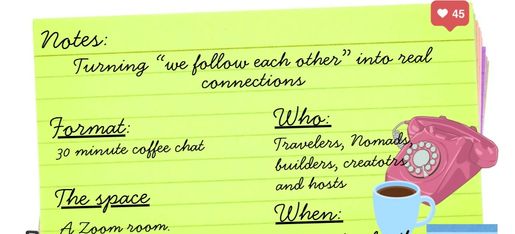 45
Notes:
Turning “we follow each other” into real
connections
Format:
30 minute coffee chat
The space
A Zoom room.
Who:
Travelers, Nomads,
builders, creatotrs
and hosts
When: